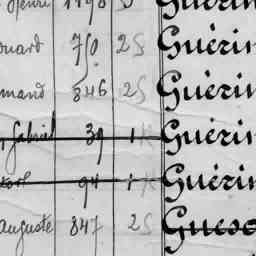 Henri 1148 Guérin
ouard 750. 25 Guérin
mand 846 25 Guérin
Gabriel 39 1 Guérin
94 1 Guérin
Auguste 847 25